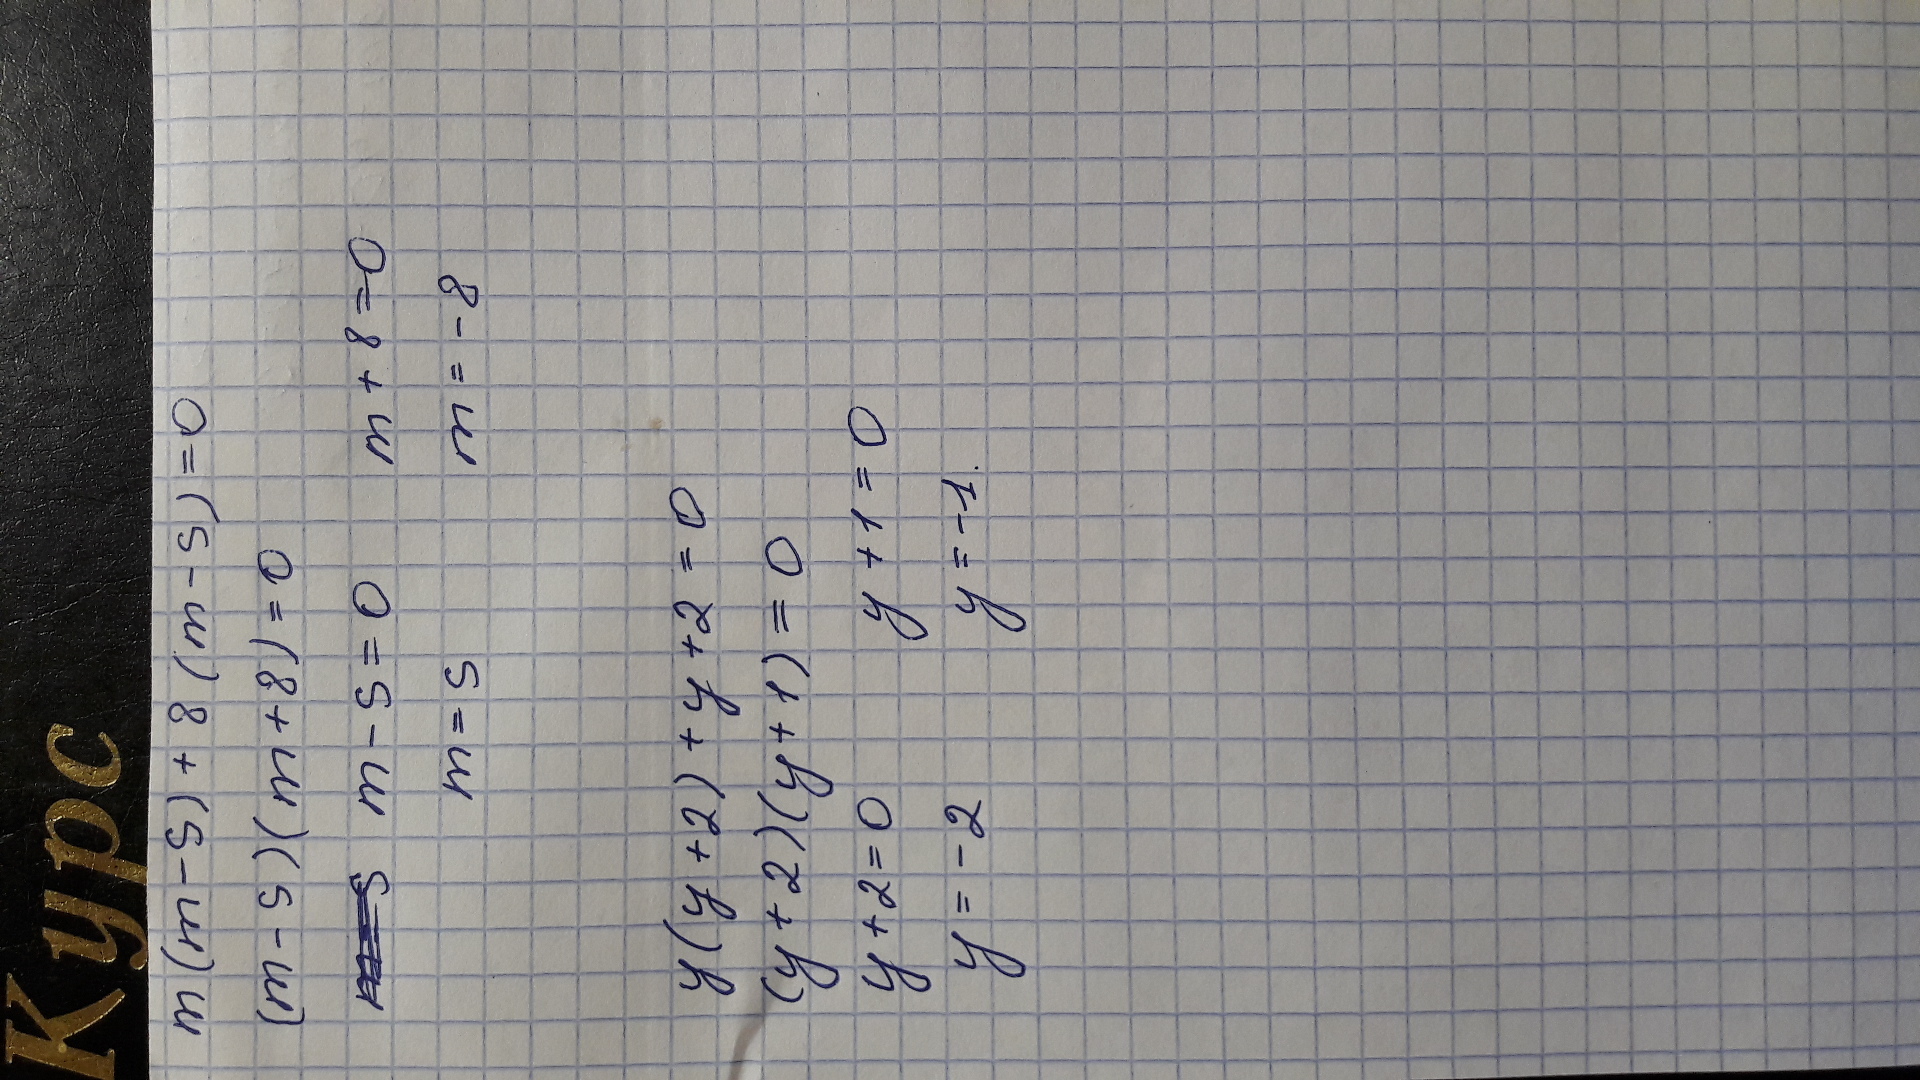 Курс
m(m-5)+8(m-5)=0
(m-5)(m+8)=0
m-5=0 m+8=0
m=5 m=-8
y(y+2)+y+2=0
(y+2)(y+1)=0
y+2=0 y+1=0
y=-2 y=-1.